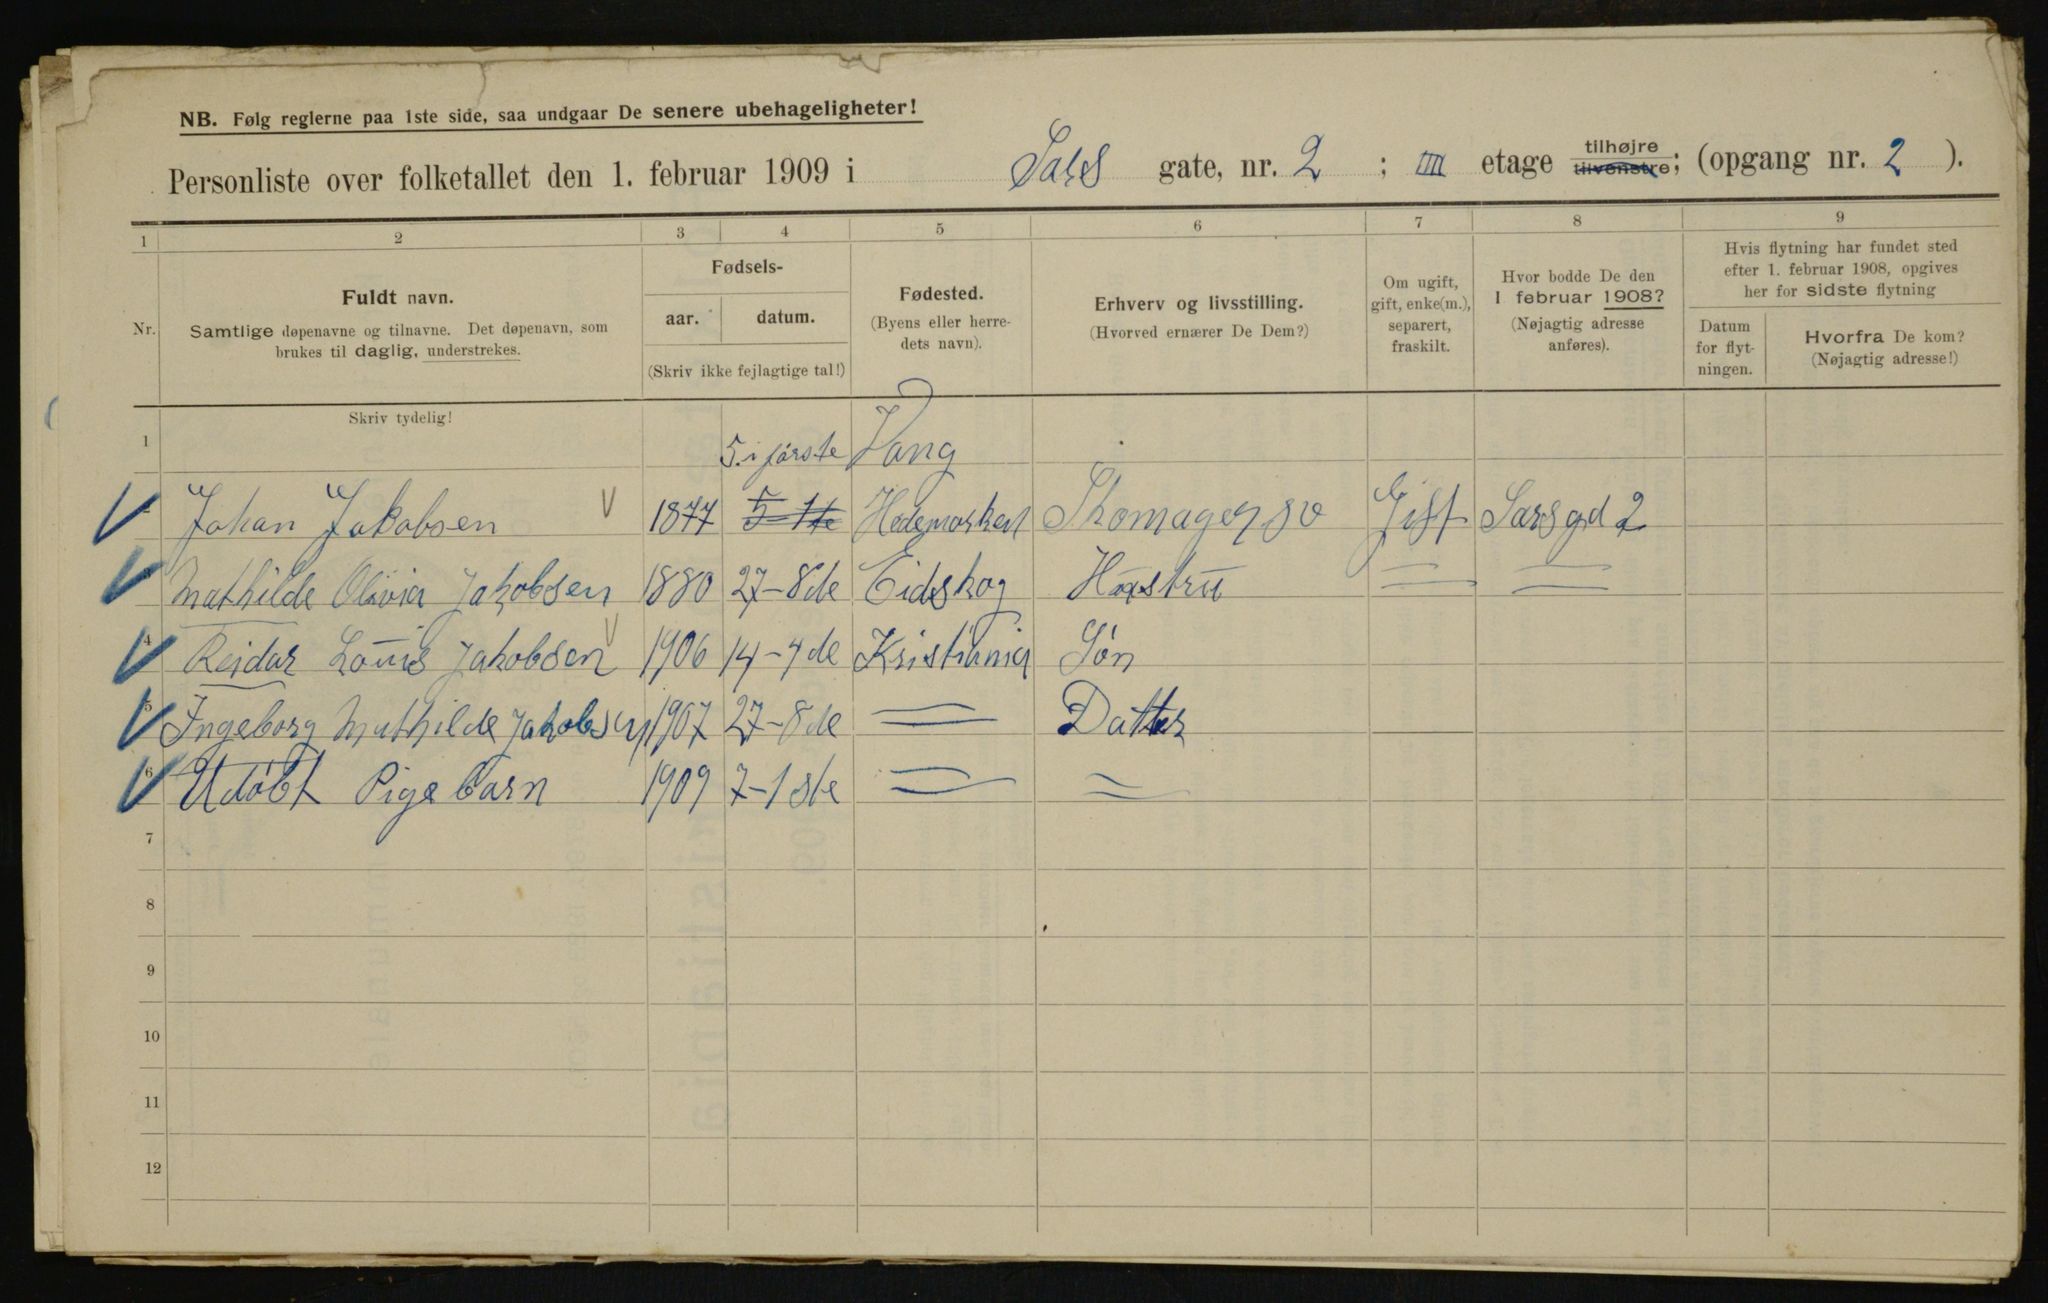 NB. Følg reglerne paa 1ste side, saa undgaar De senere ubehageligheter!
Personliste over folketallet den 1. februar 1909 i Sars gate, nr. 2 ; IIII etage tilhøjre tilvenstre; (opgang nr. 2 ).
1 2 3 4 5 6 7 8 9
Nr.
Fuldt navn.
Samtlige døpenavne og tilnavne. Det døpenavn, som
brukes til daglig, understrekes.
Fødsels-
aar. datum.
(Skriv ikke fejlagtige tal!)
Fødested.
(Byens eller herre-
dets navn).
Erhverv og livsstilling.
(Hvorved ernærer De Dem?)
Om ugift,
gift, enke(m.),
separert,
fraskilt.
Hvor bodde De den
1 februar 1908?
(Nøjagtig adresse
anføres).
Hvis flytning har fundet sted
efter 1. februar 1908, opgives
her for sidste flytning
Datum
for flyt-
ningen.
Hvorfra De kom?
(Nøjagtig adresse!)
Skriv tydelig!
1 5. i første Vang
Johan Jakobsen 1877 5-1te Hedemarken Skomagersv Gift Sarsgd 2
Mathilde Olivia Jakobsen 1880 27-8de Eidskog Hustru
4 Reidar Louis Jakobsen 1906 14-4de Kristiania Søn
5 Ingeborg Mathilde Jakobsen 1907 27-8de Datter
6 Udøbt Pigebarn 1909 7-1ste
7
8
9
10
11
12